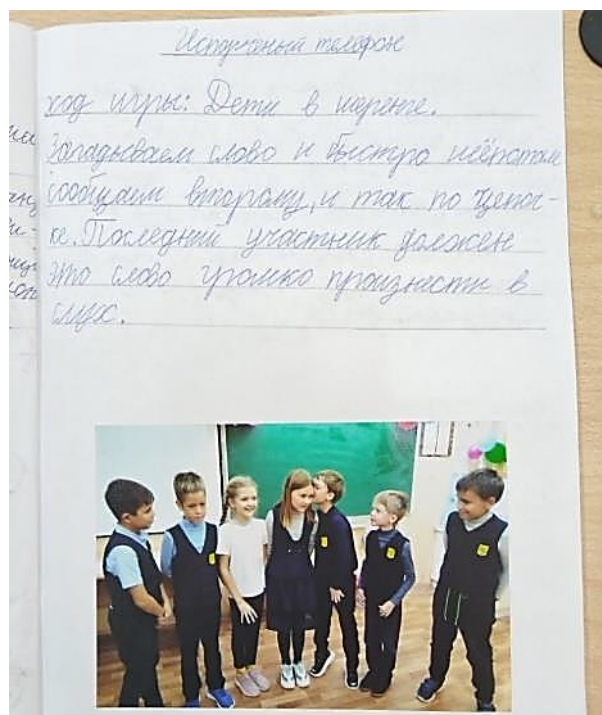 Испорченый телефон
ход игры: Дети в шеренге.
Загадываем слово и быстро шёпотом
сообщаем второму, и так по цепоч-
ке. Последний участник должен
это слово громко произнести в
слух.